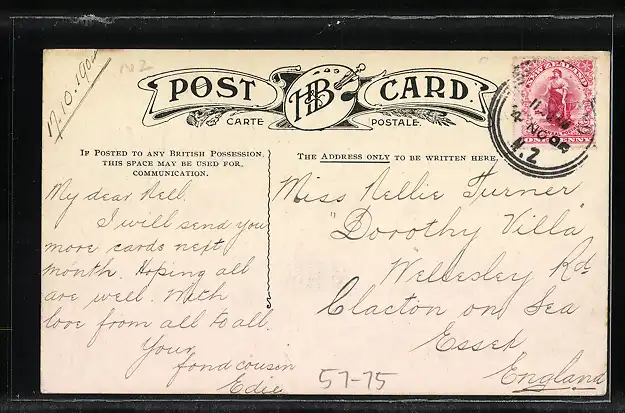 N Z
POST CARD.
HB
CARTE POSTALE.
NEW ZEALAND
ONE PENNY
N.Z
IF POSTED TO ANY BRITISH POSSESSION,
THIS SPACE MAY BE USED FOR
COMMUNICATION.
My dear Nell.
I will send you
more cards next
month. Hoping all
are well. With
love from all to all.
Your
fond cousin
Edie
THE ADDRESS ONLY TO BE WRITTEN HERE.
Miss Nellie Turner
"Dorothy Villa"
Wellesley Rd
Clacton on Sea
Essex
England
57-75